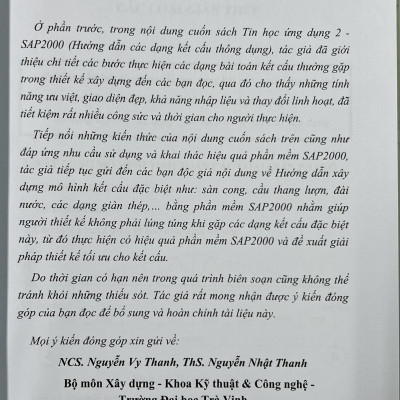 Ở phần trước, trong nội dung cuốn sách Tin học ứng dụng 2 -
SAP2000 (Hướng dẫn các dạng kết cấu thông dụng), tác giả đã giới
thiệu chi tiết các bước thực hiện các dạng bài toán kết cấu thường gặp
trong thiết kế xây dựng đến các bạn đọc, qua đó cho thấy những tính
năng ưu việt, giao diện đẹp, khả năng nhập liệu và thay đổi linh hoạt, đã
tiết kiệm rất nhiều công sức và thời gian cho người thực hiện.
Tiếp nối những kiến thức của nội dung cuốn sách trên cũng như
đáp ứng nhu cầu sử dụng và khai thác hiệu quả phần mềm SAP2000,
tác giả tiếp tục gửi đến các bạn độc giả nội dung về Hướng dẫn xây
dựng mô hình kết cấu đặc biệt như: sàn cong, cầu thang lượn, đài
nước, các dạng giàn thép,... bằng phần mềm SAP2000 nhằm giúp
người thiết kế không phải lúng túng khi gặp các dạng kết cấu đặc biệt
này, từ đó thực hiện có hiệu quả phần mềm SAP2000 và đề xuất giải
pháp thiết kế tối ưu cho kết cấu.
Do thời gian có hạn nên trong quá trình biên soạn cũng không thể
tránh khỏi những thiếu sót. Tác giả rất mong nhận được ý kiến đóng
góp của bạn đọc để bổ sung và hoàn chỉnh tài liệu này.
Mọi ý kiến đóng góp xin gửi về:
NCS. Nguyễn Vy Thanh, ThS. Nguyễn Nhật Thanh
Bộ môn Xây dựng - Khoa Kỹ thuật & Công nghệ -
Trường Đại học Trà Vinh